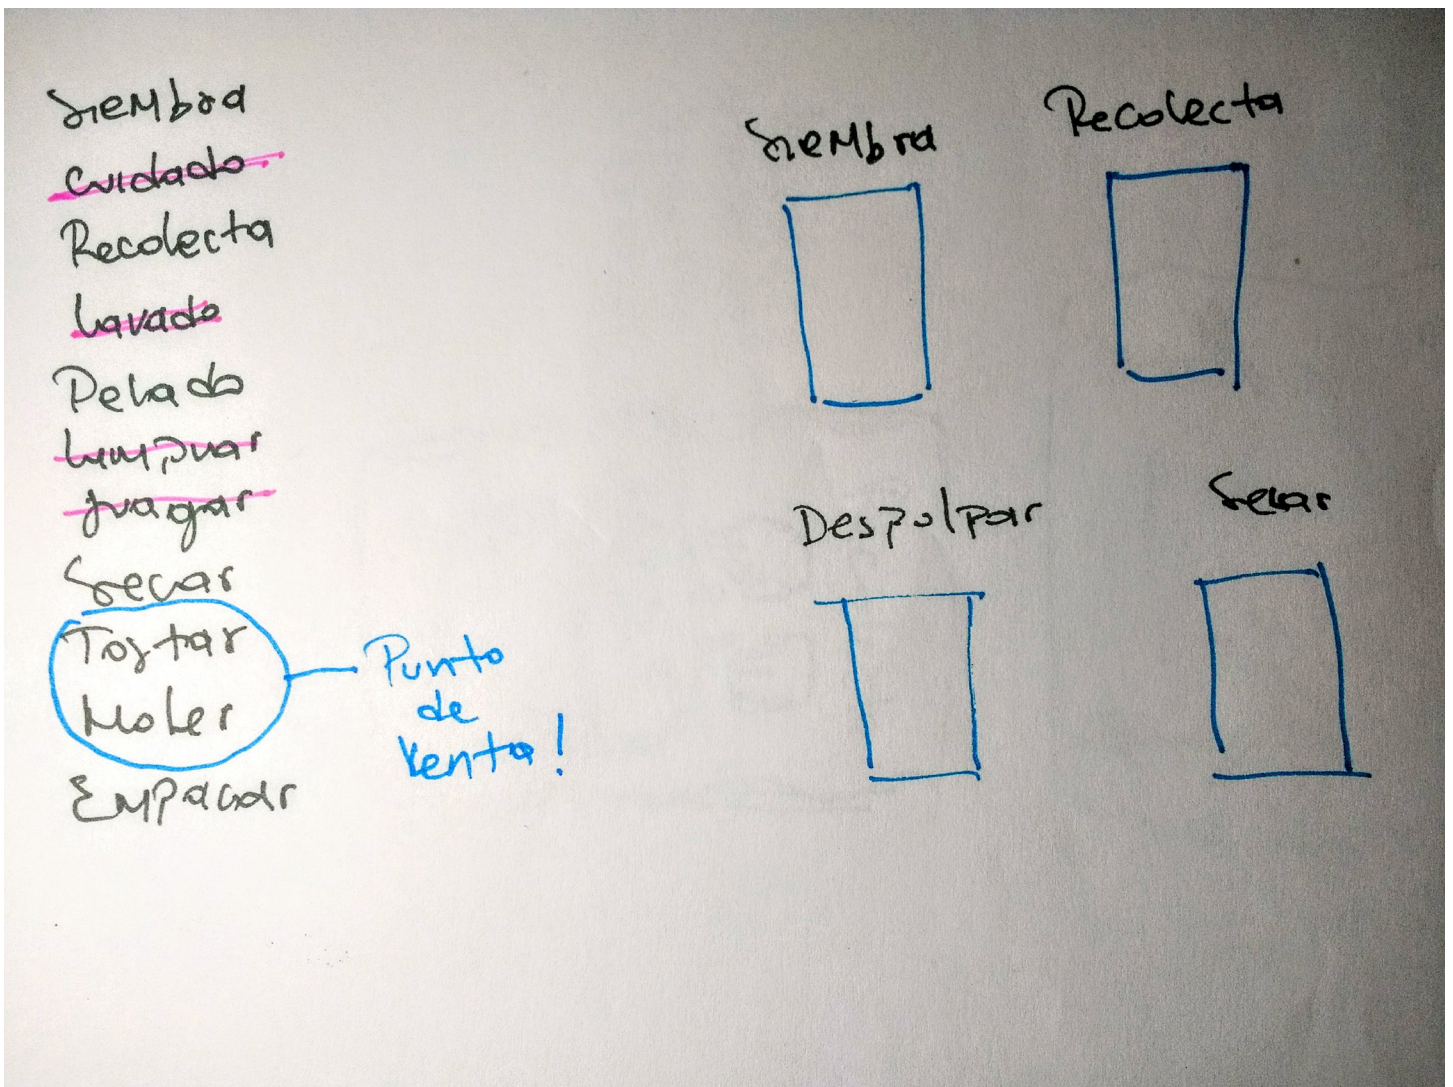 Siembra
Cuidado
Recolecta
Lavado
Pelado
Limpiar
Juagar
Secar
Tostar
Moler
Empacar
Punto
de
Venta!
Siembra
Recolecta
Despulpar
Secar